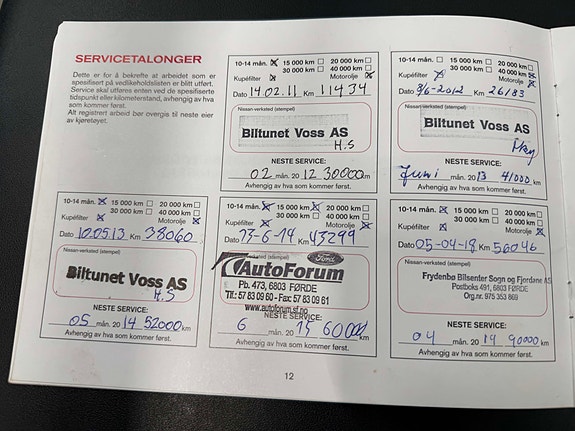 SERVICETALONGER
Dette er for å bekrefte at arbeidet som er
spesifisert på vedlikeholdslisten er blitt utført.
Service skal utføres enten ved de spesifiserte
tidspunkt eller kilometerstand, avhengig av hva
som kommer først.
Alt registrert arbeid bør overgis til neste eier
av kjøretøyet.
10-14 mån. 15 000 km 20 000 km
30 000 km 40 000 km
Kupéfilter Motorolje
Dato 14.02.11 Km 11434
Nissan-verksted (stempel)
Biltunet Voss AS
H.S
NESTE SERVICE:
02 mån. 20 12 30000 km
Avhengig av hva som kommer først.
10-14 mån. 15 000 km 20 000 km
30 000 km 40 000 km
Kupéfilter Motorolje
Dato 8/6-2012 Km 26183
Nissan-verksted (stempel)
Biltunet Voss AS
NESTE SERVICE:
Juni mån. 20 13 41000 km
Avhengig av hva som kommer først.
10-14 mån. 15 000 km 20 000 km
30 000 km 40 000 km
Kupéfilter Motorolje
Dato 10.05.13 Km 38060
Nissan-verksted (stempel)
Biltunet Voss AS
H.S
NESTE SERVICE:
05 mån. 20 14 52000 km
Avhengig av hva som kommer først.
10-14 mån. 15 000 km 20 000 km
30 000 km 40 000 km
Kupéfilter Motorolje
Dato 23-6-14 Km 43299
Nissan-verksted (stempel)
AutoForum Ford
Pb. 473, 6803 FØRDE
Tlf.: 57 83 09 60 - Fax: 57 83 09 61
www.autoforum.sf.no
NESTE SERVICE:
6 mån. 20 15 60000 km
Avhengig av hva som kommer først.
10-14 mån. 15 000 km 20 000 km
30 000 km 40 000 km
Kupéfilter Motorolje
Dato 05-04-18 Km 56046
Nissan-verksted (stempel)
Frydenbø Bilsenter Sogn og Fjordane AS
Postboks 491, 6803 FØRDE
Org.nr. 975 353 869
NESTE SERVICE:
04 mån. 20 19 90000 km
Avhengig av hva som kommer først.
12